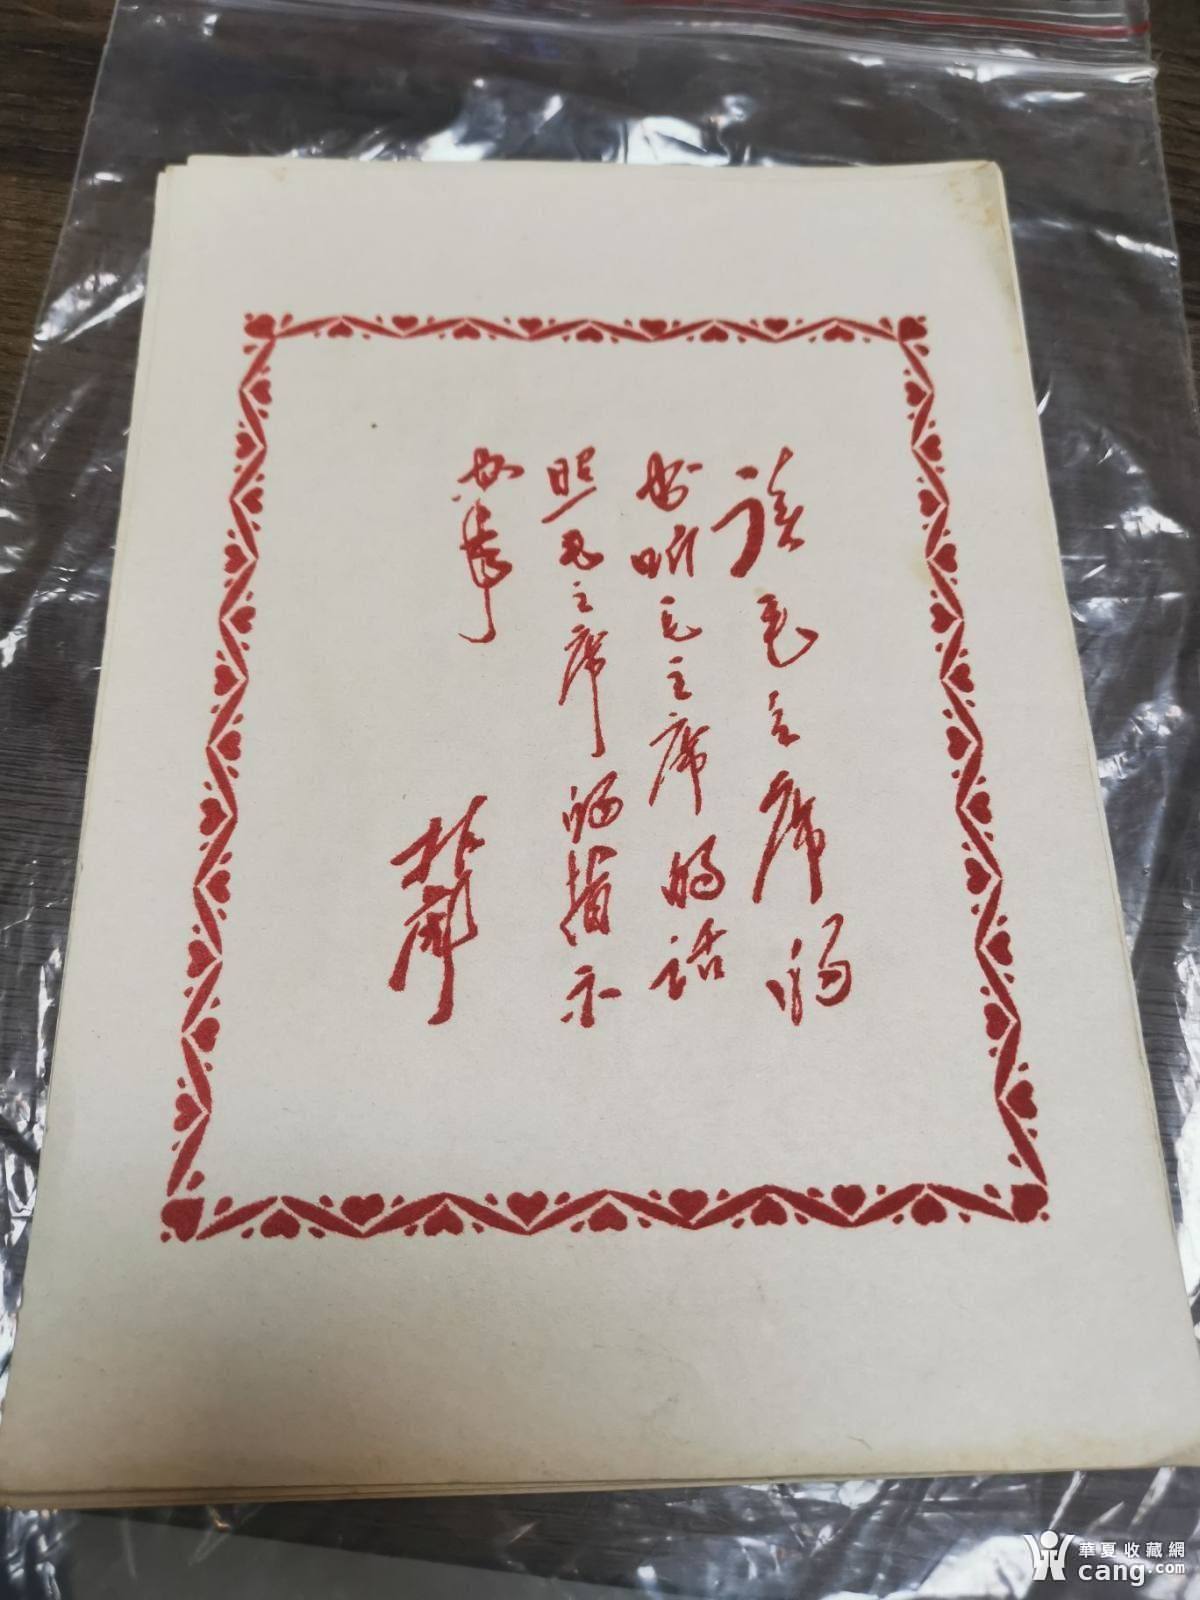 读毛主席的
书听毛主席的话
照毛主席的指示
办事
林彪
華夏收藏網
cang.com